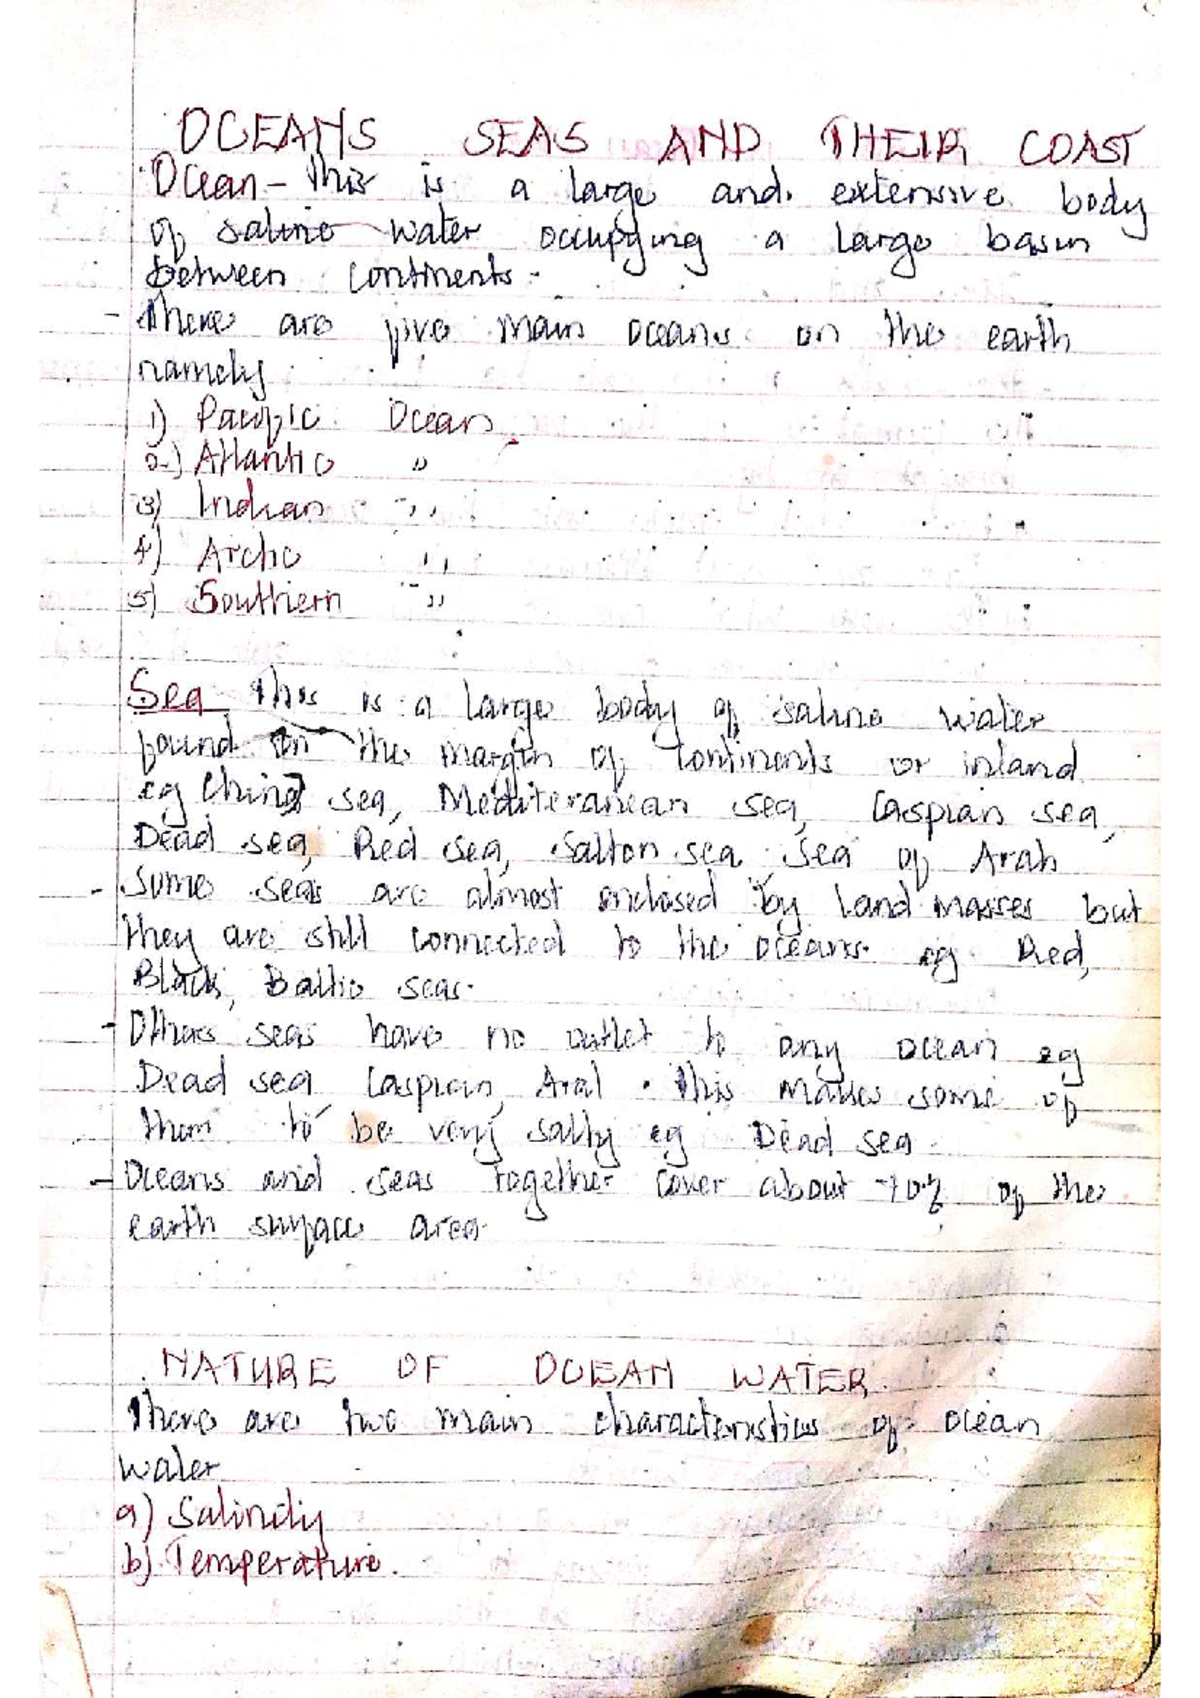 OCEANS SEAS AND THEIR COAST
Ocean - This is a large and extensive body
of saline water occupying a large basin
between continents.
- There are five main oceans on the earth
namely
1) Pacific Ocean
2) Atlantic "
3) Indian "
4) Arctic "
5) Southern "
Sea This is a large body of saline water
found on the margin of continents or inland
eg China sea, Mediteranean sea, Caspian sea,
Dead sea, Red sea, Salton sea, Sea of Arah
- Some seas are almost enclosed by land masses but
they are still connected to the oceans eg Red,
Black, Baltic seas.
- Others seas have no outlet to any ocean eg
Dead sea Caspian, Aral. This makes some of
them to be very salty eg Dead sea.
- Oceans and seas together cover about 70% of the
earth surface area.
NATURE OF OCEAN WATER
There are two main characteristics of ocean
water
a) Salinity
b) Temperature.